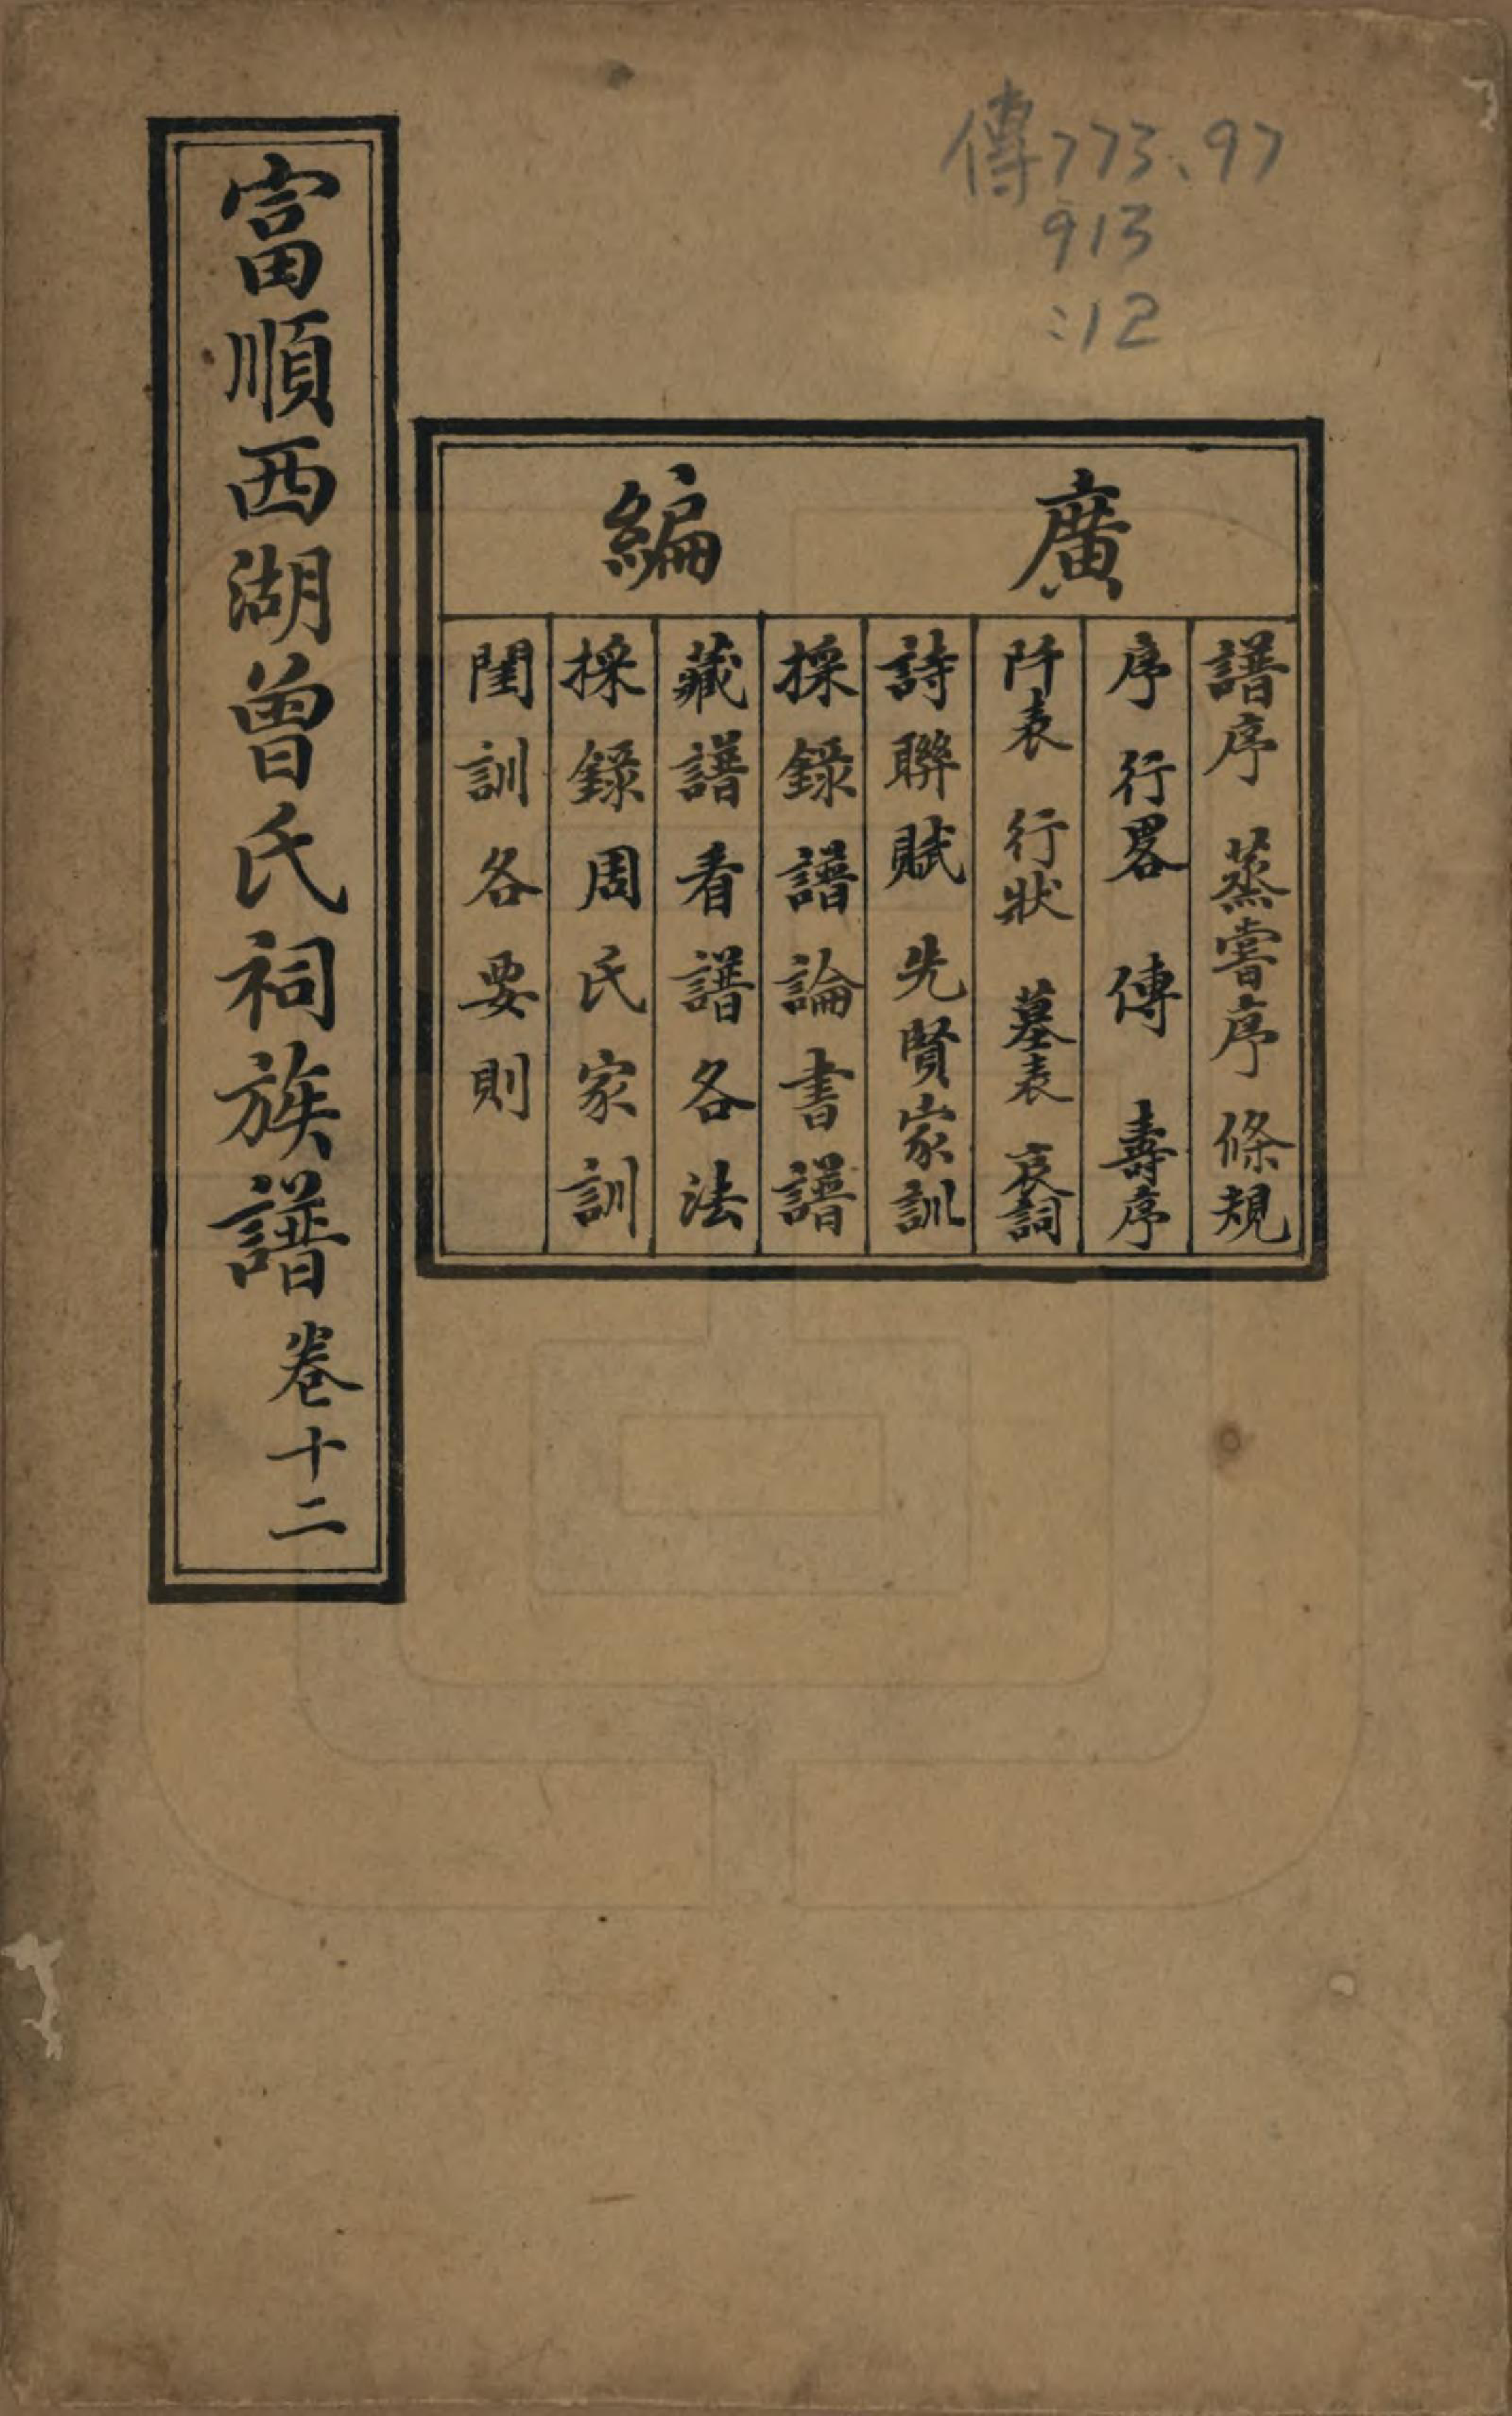 傳773.97
913
:12
富順西湖曾氏祠族譜 卷十二
廣編
譜序 蒸嘗序 條規
序 行畧 傳 壽序
阡表 行狀 墓表 哀詞
詩聯賦 先賢家訓
採錄譜論書譜
藏譜看譜各法
採錄周氏家訓
閨訓各要則